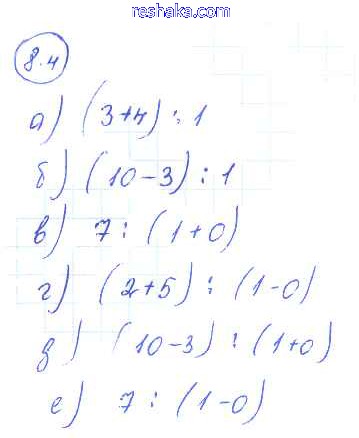 reshaka.com
8.4
а) (3+4) : 1
б) (10-3) : 1
в) 7 : (1+0)
г) (2+5) : (1-0)
д) (10-3) : (1+0)
е) 7 : (1-0)